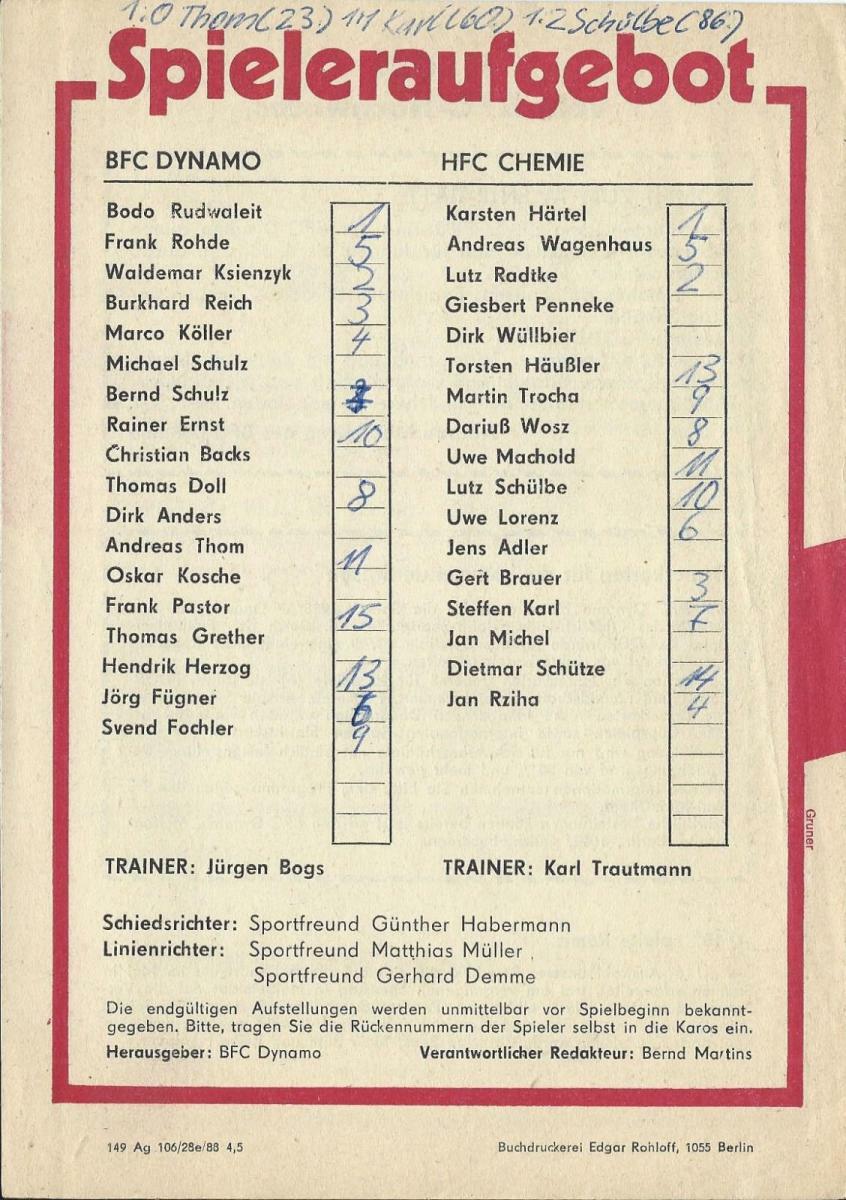 1:0 Thom (23.) 1:1 Karl (60.) 1:2 Schülbe (86.)
Spieleraufgebot
BFC DYNAMO HFC CHEMIE
Bodo Rudwaleit 1 Karsten Härtel 1
Frank Rohde 5 Andreas Wagenhaus 5
Waldemar Ksienzyk 2 Lutz Radtke 2
Burkhard Reich 3 Giesbert Penneke
Marco Köller 4 Dirk Wüllbier
Michael Schulz Torsten Häußler 13
Bernd Schulz Martin Trocha 9
Rainer Ernst 10 Dariuß Wosz 8
Christian Backs Uwe Machold 11
Thomas Doll 8 Lutz Schülbe 10
Dirk Anders Uwe Lorenz 6
Andreas Thom 11 Jens Adler
Oskar Kosche Gert Brauer 3
Frank Pastor 15 Steffen Karl 7
Thomas Grether Jan Michel
Hendrik Herzog 13 Dietmar Schütze 14
Jörg Fügner 6 Jan Rziha 4
Svend Fochler 9
TRAINER: Jürgen Bogs TRAINER: Karl Trautmann
Gruner
Schiedsrichter: Sportfreund Günther Habermann
Linienrichter: Sportfreund Matthias Müller
Sportfreund Gerhard Demme
Die endgültigen Aufstellungen werden unmittelbar vor Spielbeginn bekannt-
gegeben. Bitte, tragen Sie die Rückennummern der Spieler selbst in die Karos ein.
Herausgeber: BFC Dynamo Verantwortlicher Redakteur: Bernd Martins
149 Ag 106/28e/88 4,5 Buchdruckerei Edgar Rohloff, 1055 Berlin